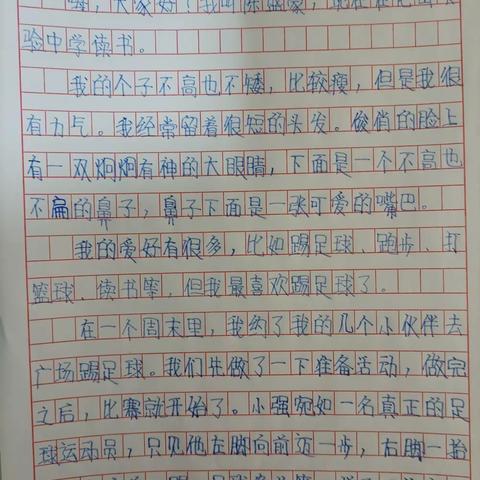 嗨，大家好！我叫
验中学读书。
我的个子不高也不矮，比较瘦，但是我很
有力气。我经常留着很短的头发。俊俏的脸上
有一双炯炯有神的大眼睛，下面是一个不高也
不扁的鼻子，鼻子下面是一张可爱的嘴巴。
我的爱好有很多，比如踢足球、跑步、打
篮球、读书等，但我最喜欢踢足球了。
在一个周末里，我约了我的几个小伙伴去
广场踢足球。我们先做了一下准备活动，做完
之后，比赛就开始了。小强宛如一名真正的足
球运动员，只见他左脚向前迈一步，右脚一抬